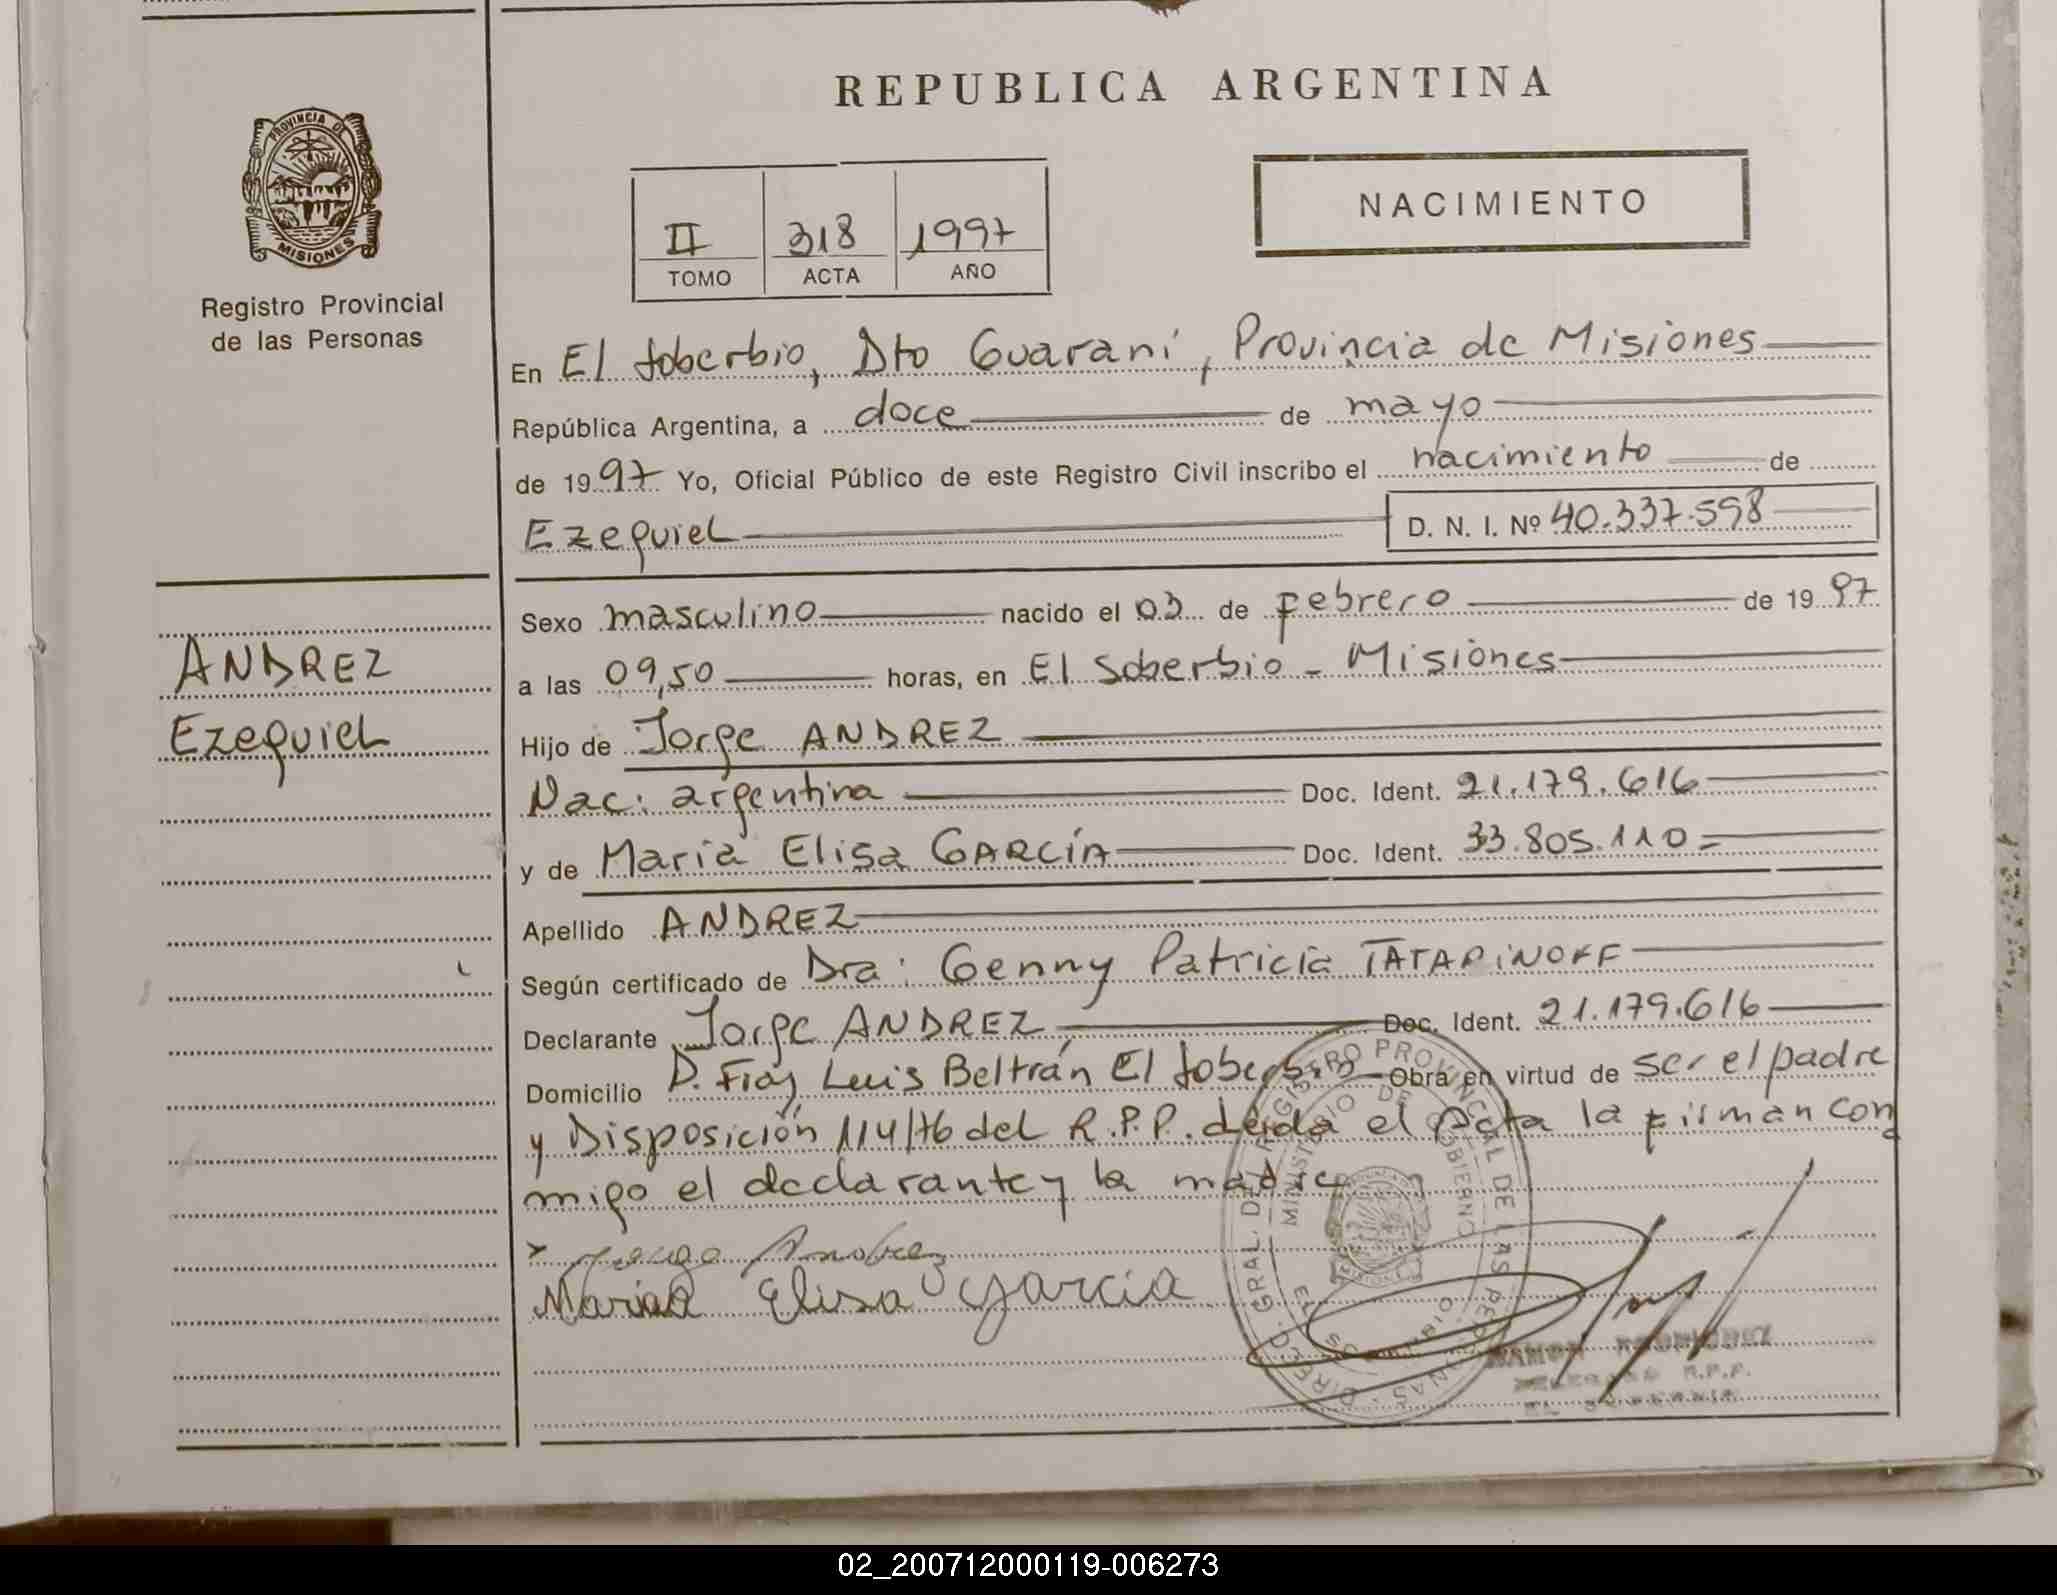 REPUBLICA ARGENTINA
PROVINCIA DE
MISIONES
Registro Provincial
de las Personas
II 318 1997
TOMO ACTA AÑO
NACIMIENTO
En El Soberbio, Dto Guaraní, Provincia de Misiones
República Argentina, a doce de mayo
de 1997 Yo, Oficial Público de este Registro Civil inscribo el nacimiento de
Ezequiel D. N. I. Nº 40.337.598
Sexo masculino nacido el 03 de febrero de 1997
ANDREZ
a las 09,50 horas, en El Soberbio - Misiones
Ezequiel
Hijo de Jorge ANDREZ
Nac: argentina Doc. Ident. 21.179.616
y de Maria Elisa GARCÍA Doc. Ident. 33.805.110=
Apellido ANDREZ
Según certificado de Dra: Genny Patricia TATARINOFF
Declarante Jorge ANDREZ Doc. Ident. 21.179.616
Domicilio D. Fray Luis Beltrán El Soberbio Obra en virtud de ser el padre
y Disposición 114/76 del R.P.P. Leída el Acta la firman con
migo el declarante y la madre
Jorge Andrez
Maria Elisa Garcia
DIRECC. GRAL. DEL REGISTRO PROVINCIAL DE LAS PERSONAS
MINISTERIO DE GOBIERNO
EL SOBERBIO
RAMON RODRIGUEZ
DELEGADO R.P.P.
EL SOBERBIO
02_200712000119-006273